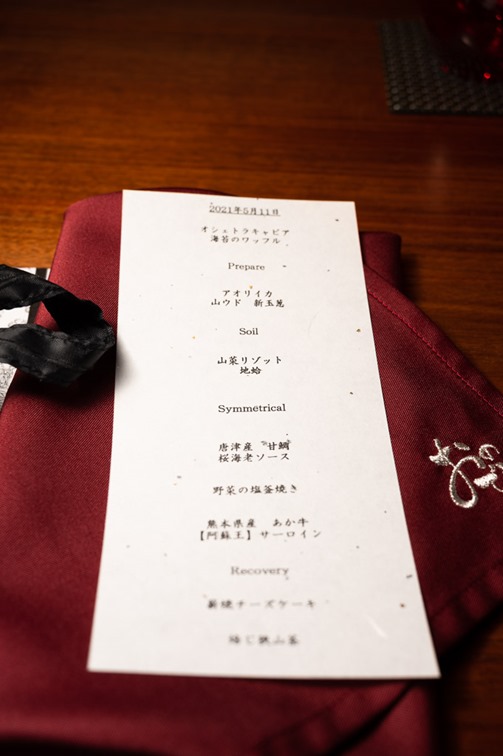 2021年5月11日
オシェトラキャビア
海苔のワッフル
Prepare
アオリイカ
山ウド 新玉葱
Soil
山菜リゾット
地蛤
Symmetrical
唐津産 甘鯛
桜海老ソース
野菜の塩釜焼き
熊本県産 あか牛
【阿蘇王】サーロイン
Recovery
薪焼チーズケーキ